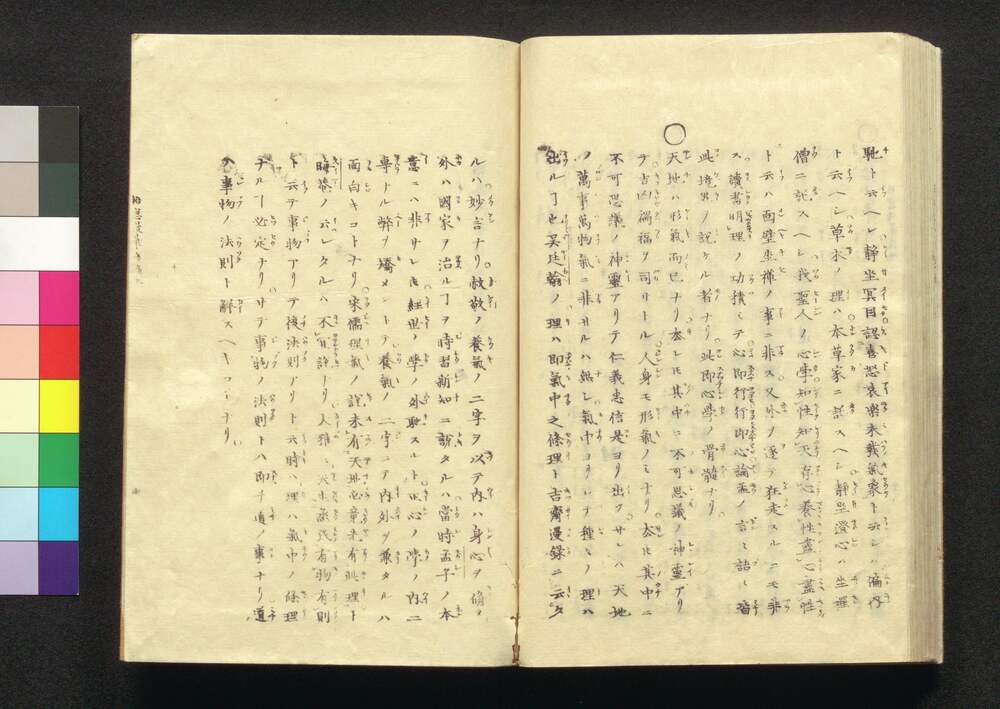 耻ト云ヘシ靜坐冥目認喜怒哀樂未發氣象ト云シハ偏ニ
ト云ヘシ草木ノ理ハ本草家ニ託スヘシ靜坐澄心ハ坐禪
僧ニ託スヘシ我聖人ノ心學知性知天存心養性盡心盡性
ト云ハ面壁坐禪ノ事ニ非ス又外ヲ逐テ狂走スルニモ非
ス讀書明理ノ功積ミテ心即行行即心論孟ノ言ミ語シ
此境界ノ說ケル者ナリ此即心學ノ骨髓ナリ
○
天地ハ形氣而已ナリ然レ𪜈其中ニ不可思議ノ神靈アリ
テ吉凶禍福ヲ司リトル人身モ形氣ノミナリ然𪜈其中ニ
不可思議ノ神靈アリテ仁義忠信是ヨリ出ツサレハ天地
ノ萬事萬物氣ニ非サルハ無シ氣中コレシナ種々ノ理ハ
出ルヿ也吳廷翰ノ理ハ即氣中之條理ト吉齋漫錄ニ云タ
ルハ妙言ナリ敖敬ノ養氣ノ二字ヲ以テ內ハ身心ヲ脩メ
外ハ國家ヲ治ルヿヲ時習新知ニ說タルハ當時孟子ノ本
意ニハ非サレ𪜈經世ノ學ノ外馳スルト正心ノ學ノ內ニ
專トル弊ヲ矯メントテ養氣ノ二字ニテ內外ヲ兼タルハ
面白キコトナリ宋儒理氣ノ說未有天地必竟先有此理ト
晦菴ノ云レタルハ不用許ナリ人雅天生蒸民有物有則
ト云テ事物アリテ後法則アリト云時ハ理ハ氣中ノ條理
ナルヿ必定ナリサテ事物ノ法則トハ即チ道ノ事ナリ道
ハ事物ノ法則ト解スヘキコトナリ